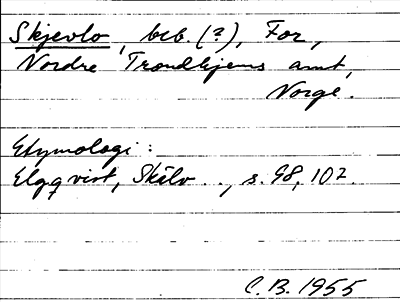 Skjevlo, beb. (?), For,
Nordre Trondhjems amt,
Norge.
Etymologi:
Elgqvist, Skälv .., s. 98, 102.
C.B. 1955